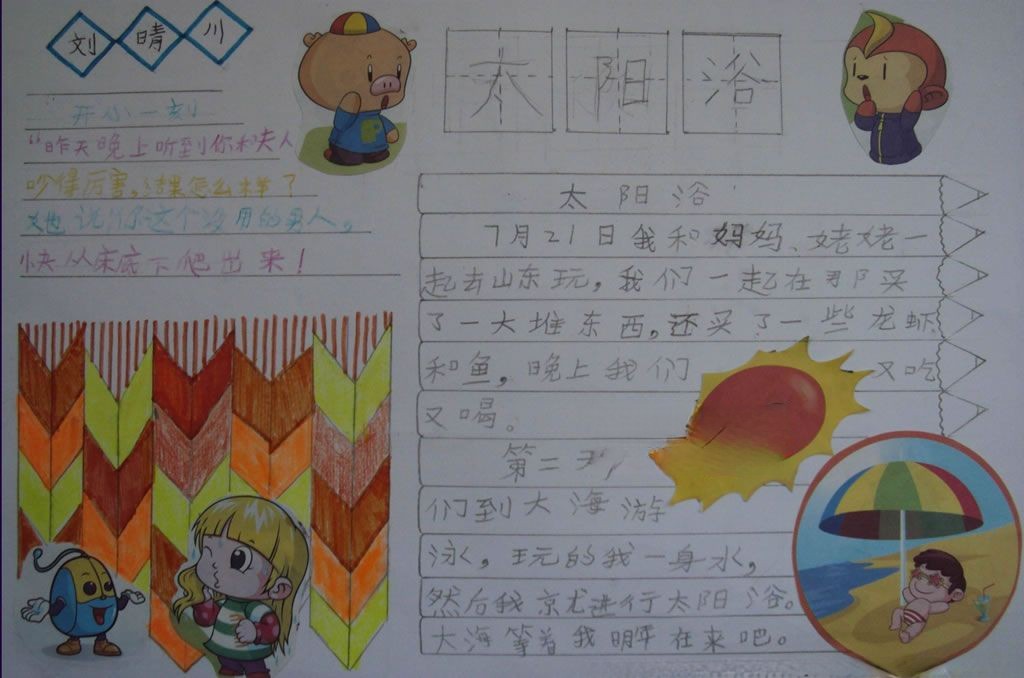 刘晴川
开心一刻
“昨天晚上听到你和夫人
吵得厉害,结果怎么样?
她说,你这个没用的男人,
快从床底下爬出来!
太阳浴
太阳浴
7月21日我和妈妈、姥姥一
起去山东玩,我们一起在那买
了一大堆东西,还买了一些龙虾
和鱼,晚上我们又吃
又喝。
第二天,
们到大海游
泳,玩的我一身水,
然后我就进行太阳浴。
大海等着我明年在来吧。